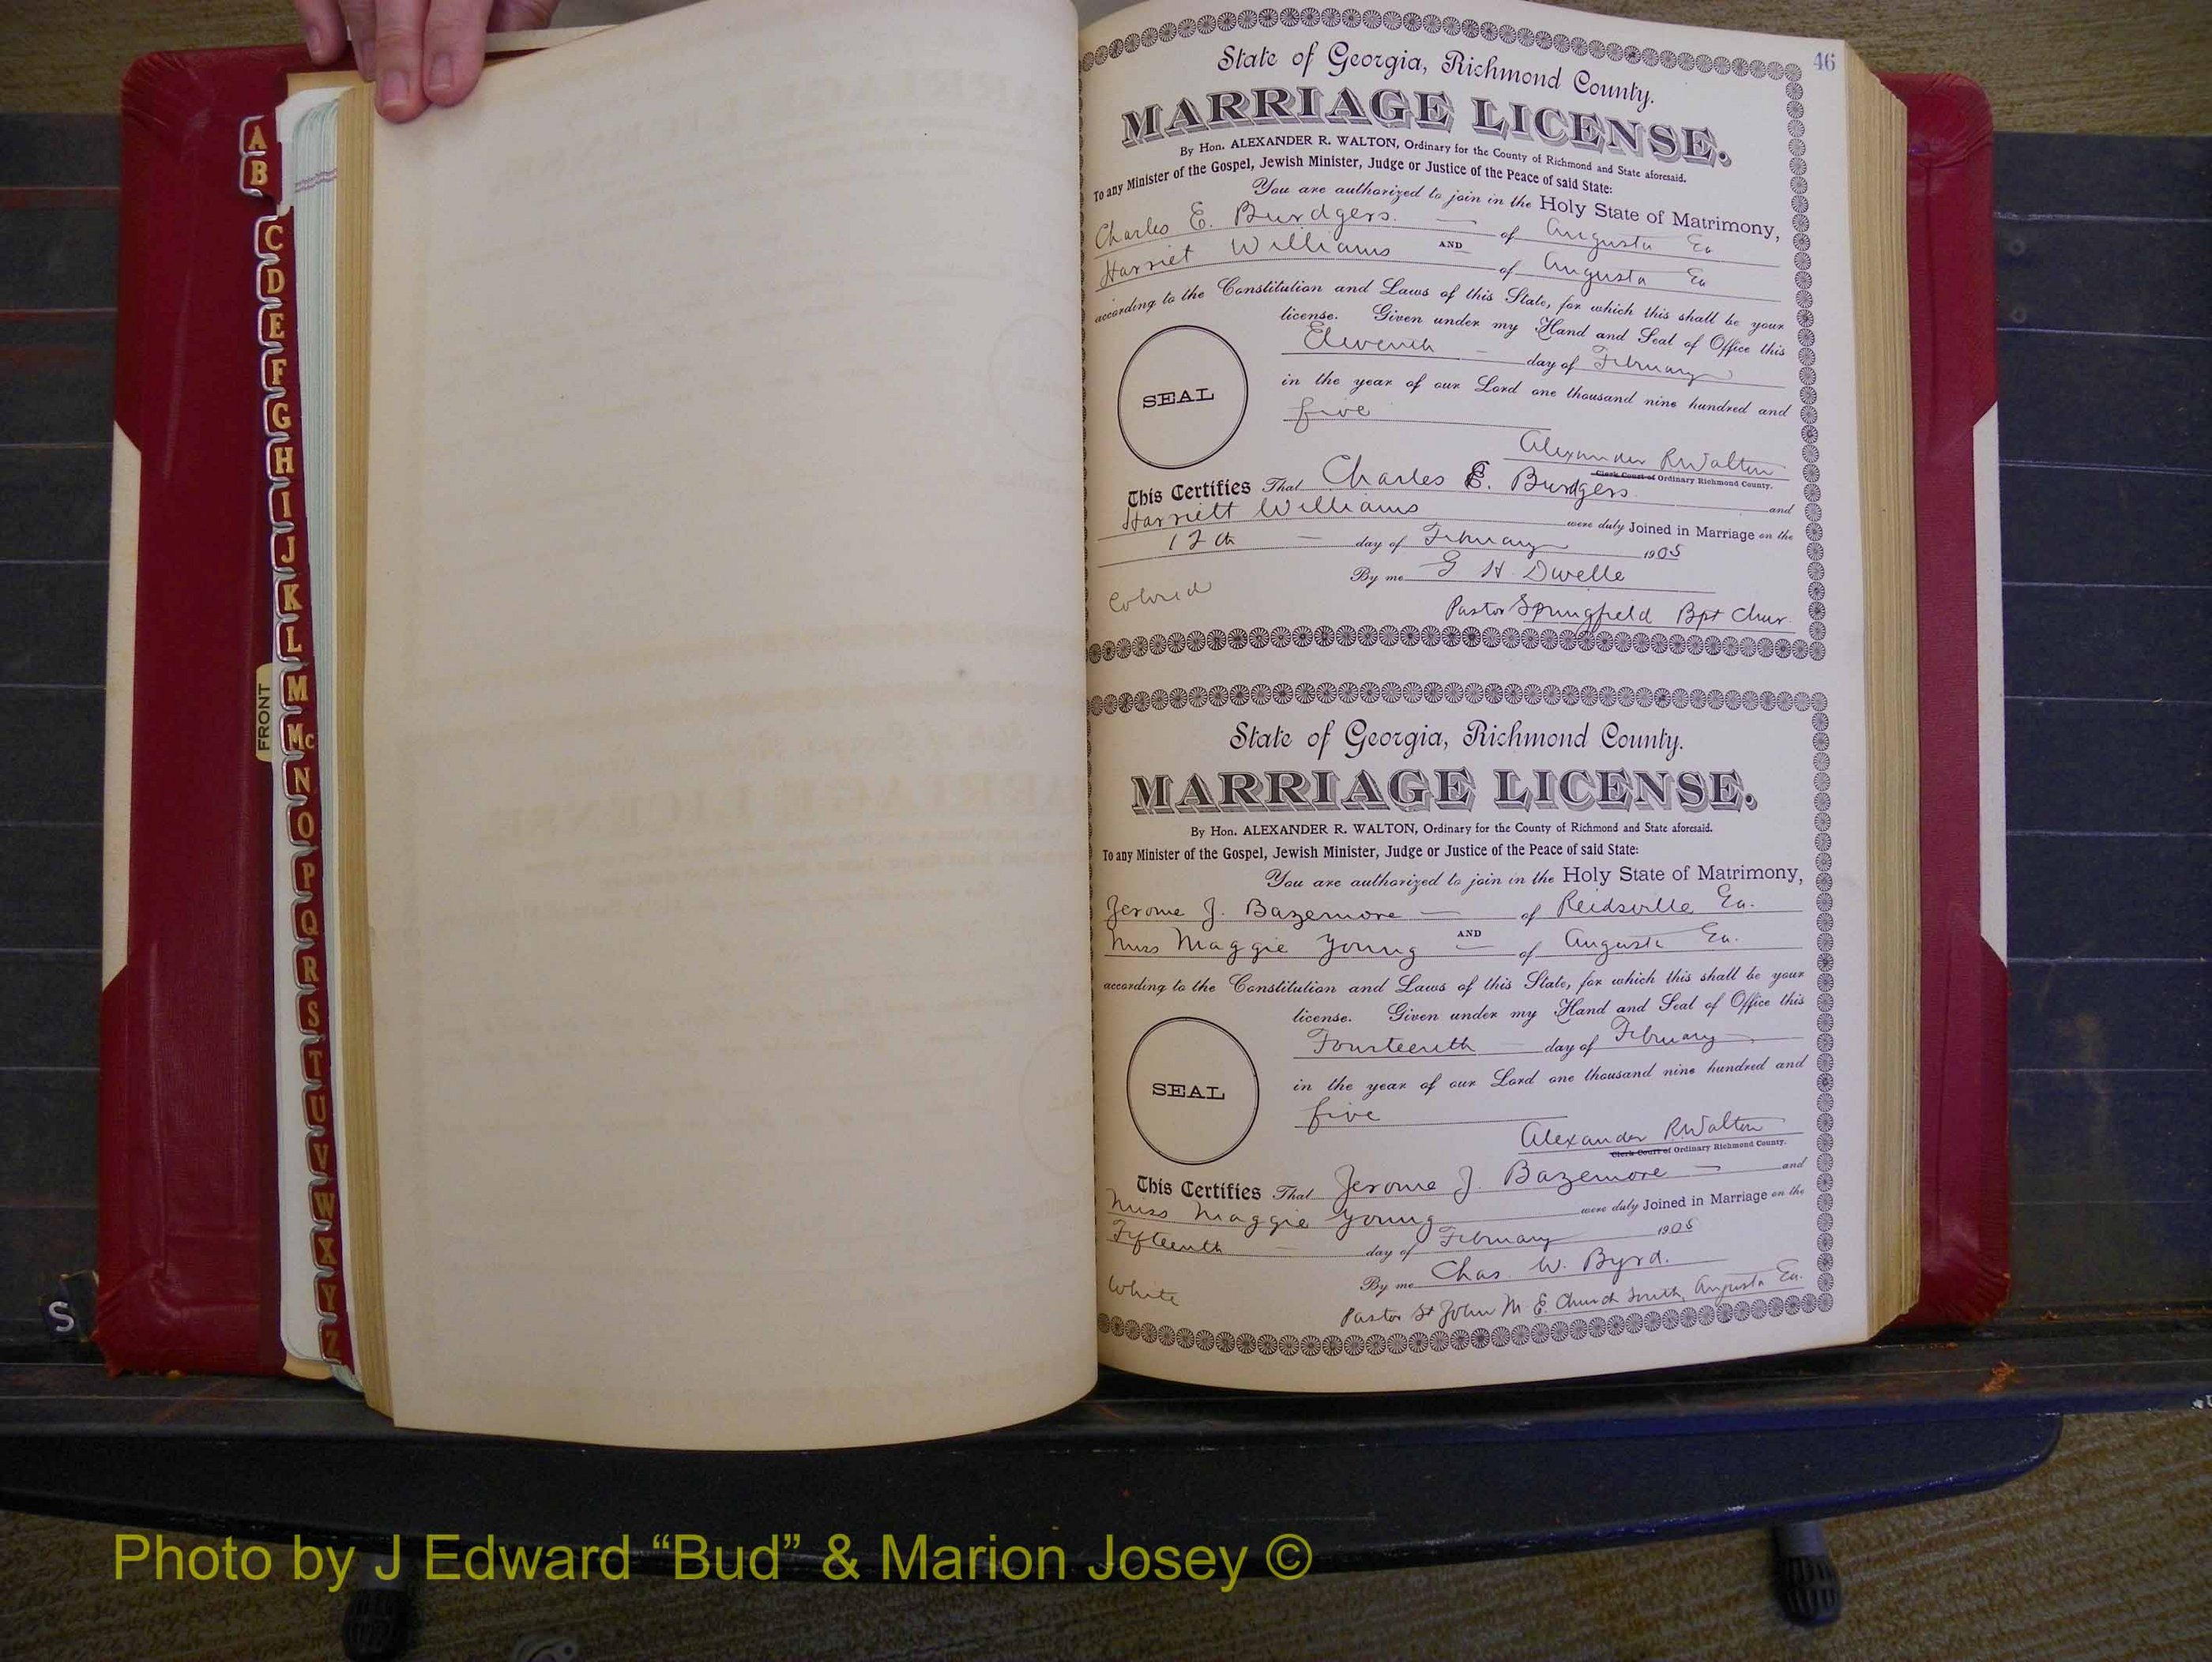 A
B
C
D
E
F
G
H
I
J
K
L
M
Mc
N
O
P
Q
R
S
T
U
V
W
X
Y
Z
FRONT
S
46
State of Georgia, Richmond County.
MARRIAGE LICENSE.
By Hon. ALEXANDER R. WALTON, Ordinary for the County of Richmond and State aforesaid.
To any Minister of the Gospel, Jewish Minister, Judge or Justice of the Peace of said State:
You are authorized to join in the Holy State of Matrimony,
Charles E. Burdgers. of Augusta Ga
AND
Harriet Williams of Augusta Ga
according to the Constitution and Laws of this State, for which this shall be your
license. Given under my Hand and Seal of Office this
Eleventh day of February
in the year of our Lord one thousand nine hundred and
five
SEAL
Alexander R Walton
Clerk Court of Ordinary Richmond County.
This Certifies That Charles E. Burdgers. and
Harriett Williams were duly Joined in Marriage on the
12th day of February 1905
By me G H Dwelle
Colored
Pastor Springfield Bpt Chur.
State of Georgia, Richmond County.
MARRIAGE LICENSE.
By Hon. ALEXANDER R. WALTON, Ordinary for the County of Richmond and State aforesaid.
To any Minister of the Gospel, Jewish Minister, Judge or Justice of the Peace of said State:
You are authorized to join in the Holy State of Matrimony,
Jerome J. Bazemore of Reidsville Ga.
AND
Miss Maggie Young of Augusta Ga.
according to the Constitution and Laws of this State, for which this shall be your
license. Given under my Hand and Seal of Office this
Fourteenth day of February
in the year of our Lord one thousand nine hundred and
five
SEAL
Alexander R Walton
Clerk Court of Ordinary Richmond County.
This Certifies That Jerome J. Bazemore and
Miss Maggie Young were duly Joined in Marriage on the
Fifteenth day of February 1905
By me Chas. W. Byrd.
White
Pastor St John M. E. Church South, Augusta Ga.
Photo by J Edward “Bud” & Marion Josey ©